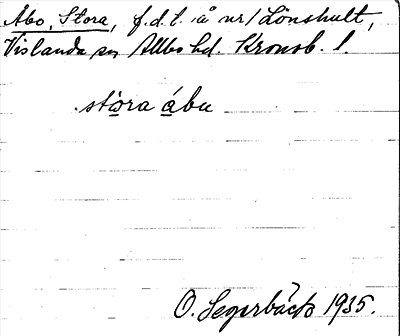 Åbo, Stora, f.d. t. å nr 1 Lönshult,
Vislanda sn Allbo hd. Kronob. l.
stòra ábu
O. Segerbäck 1935.